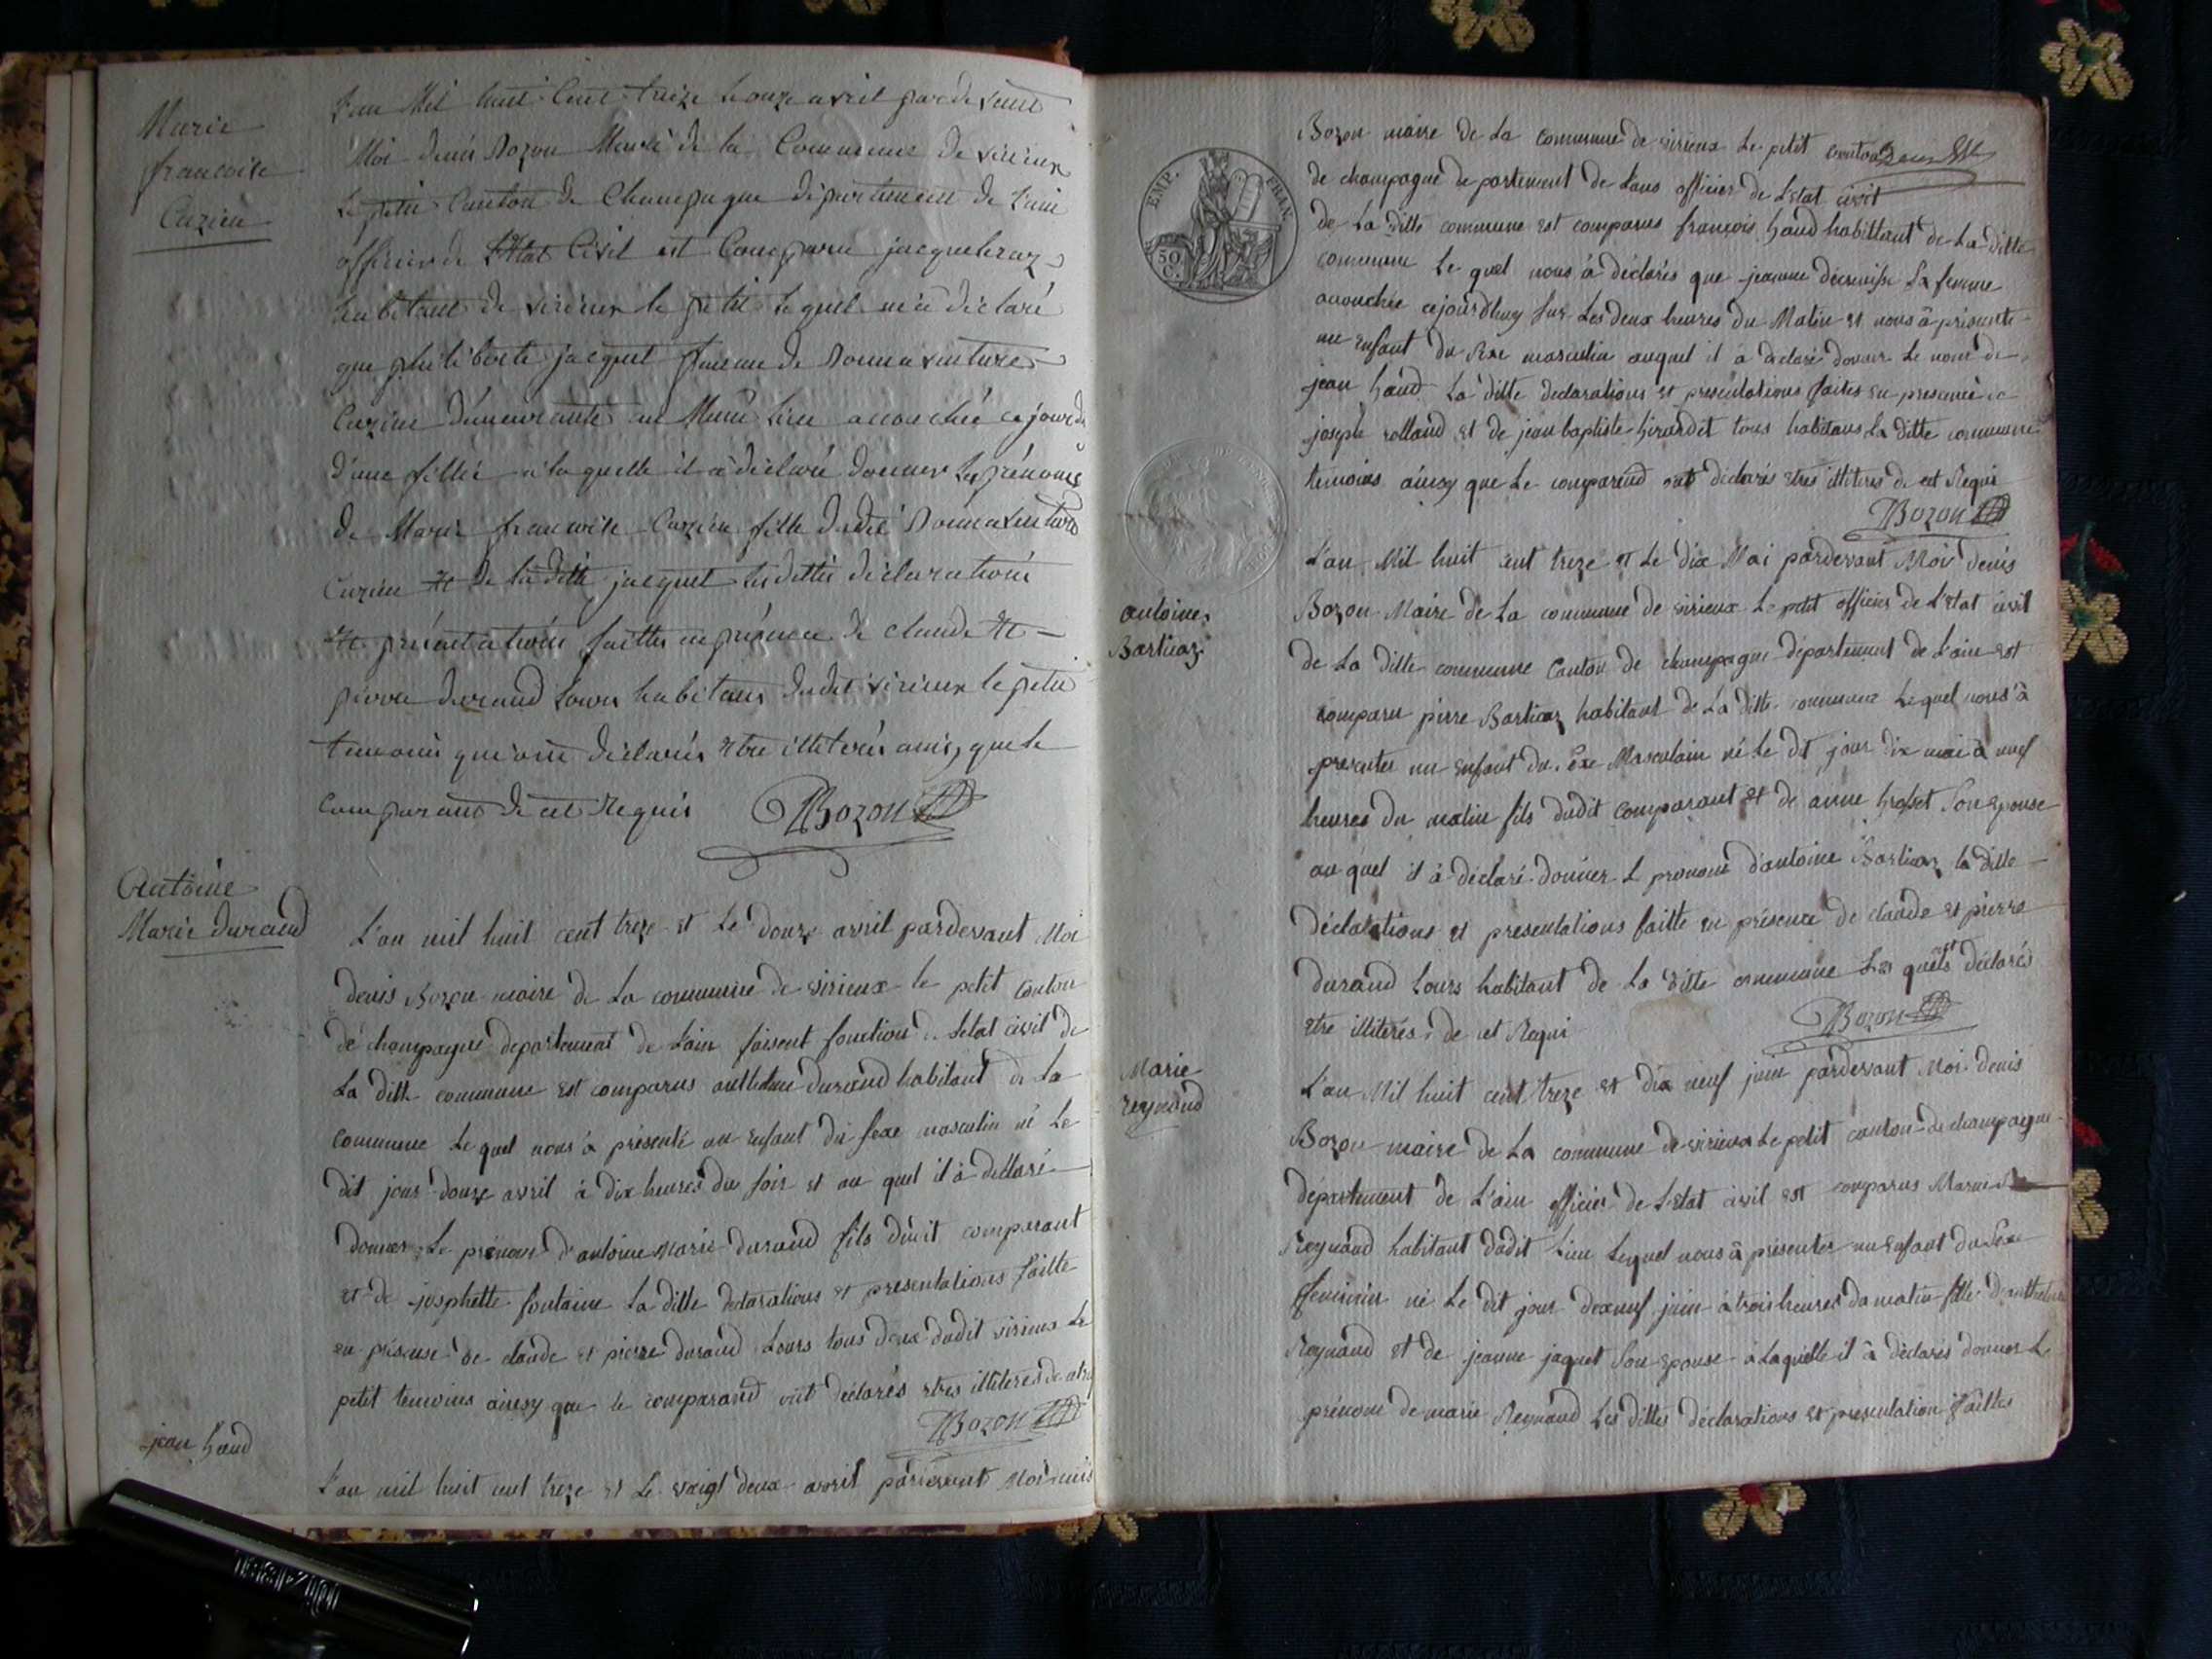 Marie
francoise
Cuzieu
L'an Mil huit Cent treize le onze avril par devant
Moi denis Bozon Maire de la Commune de virieux
Le petit Canton de Champagne département de l'ain
officier de L'Etat Civil est Comparu
habitant de virieux le petit lequel m'a déclaré
que philiberte jacquet femme de Bonnaventure
Cuzieu demeurante au Même lieu accouchée ce jourd
d'une fille a laquelle il a déclaré donner les prénoms
de Marie francoise Cuzieu fille dudit Bonnaventure
Cuzieu Et de la ditte jacquet les dittes déclarations
Et présentations faittes en présence de claude Et
pierre durand Lours habitans dudit virieux le petit
temoins qui ont déclarés Etre illiterés ainsy que le
Comparant de cet Requis Bozon
Antoine
Marie durand
L'an mil huit cent treze et Le douze avril pardevant Moi
denis Bozon maire de La commune de virieux le petit Canton
de champagne departement de L'ain faisent fonction de Letat civil de
La ditte commune est comparus anthelme durand habitant de La
Commune Le quel nous à présenté un enfant du sexe masculin né Le
dit jour douze avril à dix heures du soir et au quel il à declaré
donner Le prénom d'antoine Marie durand fils dudit comparant
et de josphette fontaine La ditte declarations et presentations faitte
en présense de claude et pierre durand Lours tous deux dudit virieux Le
petit temoins ainsy que le comparand ont déclarés etres illiteres de
Bozon
jean haud
L'an mil huit cent treze et Le vaigt deux avril pardevant Moi denis
EMP. FRAN.
50 C.
Bozon maire de La commune de virieux Le petit canton
de champagne departement de L'ains officier de L'etat civil
de La ditte commune est comparus françois haud habittant de La ditte
commune Le quel nous à déclarés que jeanne décrenisse Sa femme
accouchée cejourdhuy sur Les deux heures du Matin et nous à présenté
un enfant du sexe masculin auquel il à déclaré donner Le nom de
jean haud La ditte declarations et presentations faites en presence de
joseph rolland et de jean baptiste girardet tous habitans La ditte commune
temoins ainsy que Le comparend ont déclarés etres illiteres de cet Requi
Bozon
antoine
Barticaz
L'an Mil huit cent treze et Le dix Mai pardevant Moi denis
Bozon Maire de La commune de virieux Le petit officier de L'etat civil
de La ditte commune Canton de champagne département de L'ain est
comparu pierre Barticaz habitant de La ditte commune Lequel nous à
presenter un enfant du sexe Masculain né Le dit jour dix mai à neuf
heures du matin fils dudit comparant et de anne son epouse
au quel il à déclaré donner L prenom d'antoine Barticaz la ditte
déclarations et presentations faitte en présence de claude et pierre
durand Lours habitant de La ditte commune Les quels ont déclarés
etre illiterés de cet Requi
Bozon
Marie
reynaud
L'an Mil huit cent treze et dix neuf juin pardevant Moi denis
Bozon maire de La commune de virieux Le petit canton de champagne
département de L'ain officier de L'etat civil est comparus
Reynaud habitant dudit Lieu Lequel nous à présenter un enfant du sexe
feminin né Le dit jour dixneuf juin à trois heures du matin fille d'anthelme
Reynaud et de jeanne jaquet son epouse à Laquelle il à déclarés donner Le
prénom de marie Reynaud Les dittes déclarations et presentation faittes